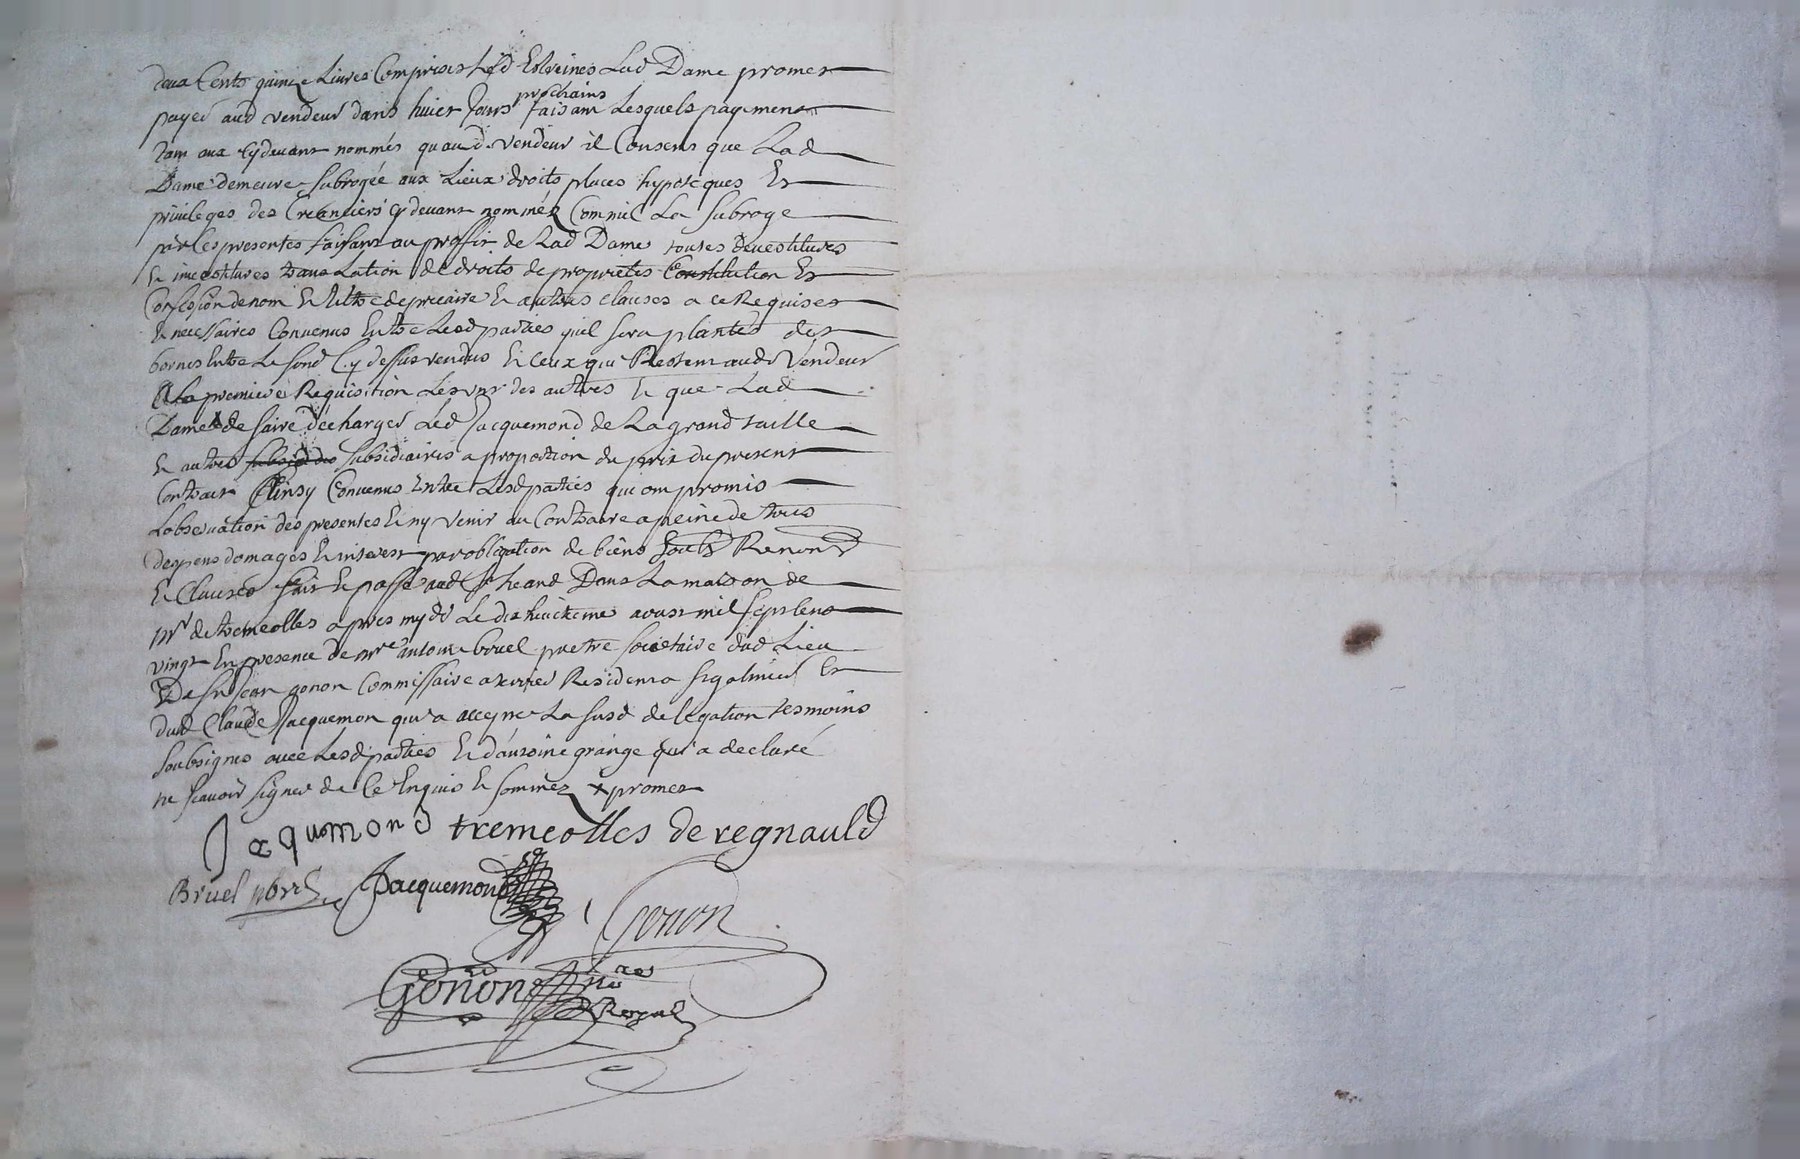 deux Cents quinze Livres Comprises Lesd Estreines Lad Dame promet
payer aud vendeur dans huict Jours prochains faisant Lesquels payements
tant aux cy devant nommés qu aud vendeur il Consent que Lad
Dame demeure Subrogée aux Lieux droits places hypoteques Et
privileges des Creantiers cy devant nommés Comme il La Subroge
par Les presentes faisant au proffit de Lad Dame toutes devestitures
Et investitures translation de droits de proprietes Constitution Et
Confession de nom Et tiltre de precaire Et autres clauses a ce Requises
Et necessaires Convenus Entre Lesd parties quil sera plantés des
bornes Entre Le fond Cy dessus vendus Et Ceux qui Restent aud Vendeur
A La premiere Requisition Les uns des autres Et que Lad
Dame x de faire décharger Led Jacquemond de La grand taille
Et autres subsidiaires a proportion du prix du present
Contract Ainsy Convenus Entre Lesd parties qui ont promis
Lobservation des presentes Et ny venir au Contraire a peine de tous
despens domages Et interest par obligation de biens Soubs Renon
Et Clauses fait Et passé aud St heand Dans La maison de
Mr de tremeolles apres mydy Le dix huictieme aoust mil sept cent
vingt En presence de mre antoine bruel prettre societaire dud Lieu
De Sr Jean gonon Commissaire a terrier Resident a St galmier Et
dud Claude Jacquemon qui a accepté La susd delegation tesmoins
soubsignes avec Lesd parties Et dantoine grange qui a declaré
ne scavoir signer de Ce Enquis Et sommés x promet
Jaqumond tremeolles de regnauld
Bruel pbre Jacquemond
Gonon
Gonon nore
Royal